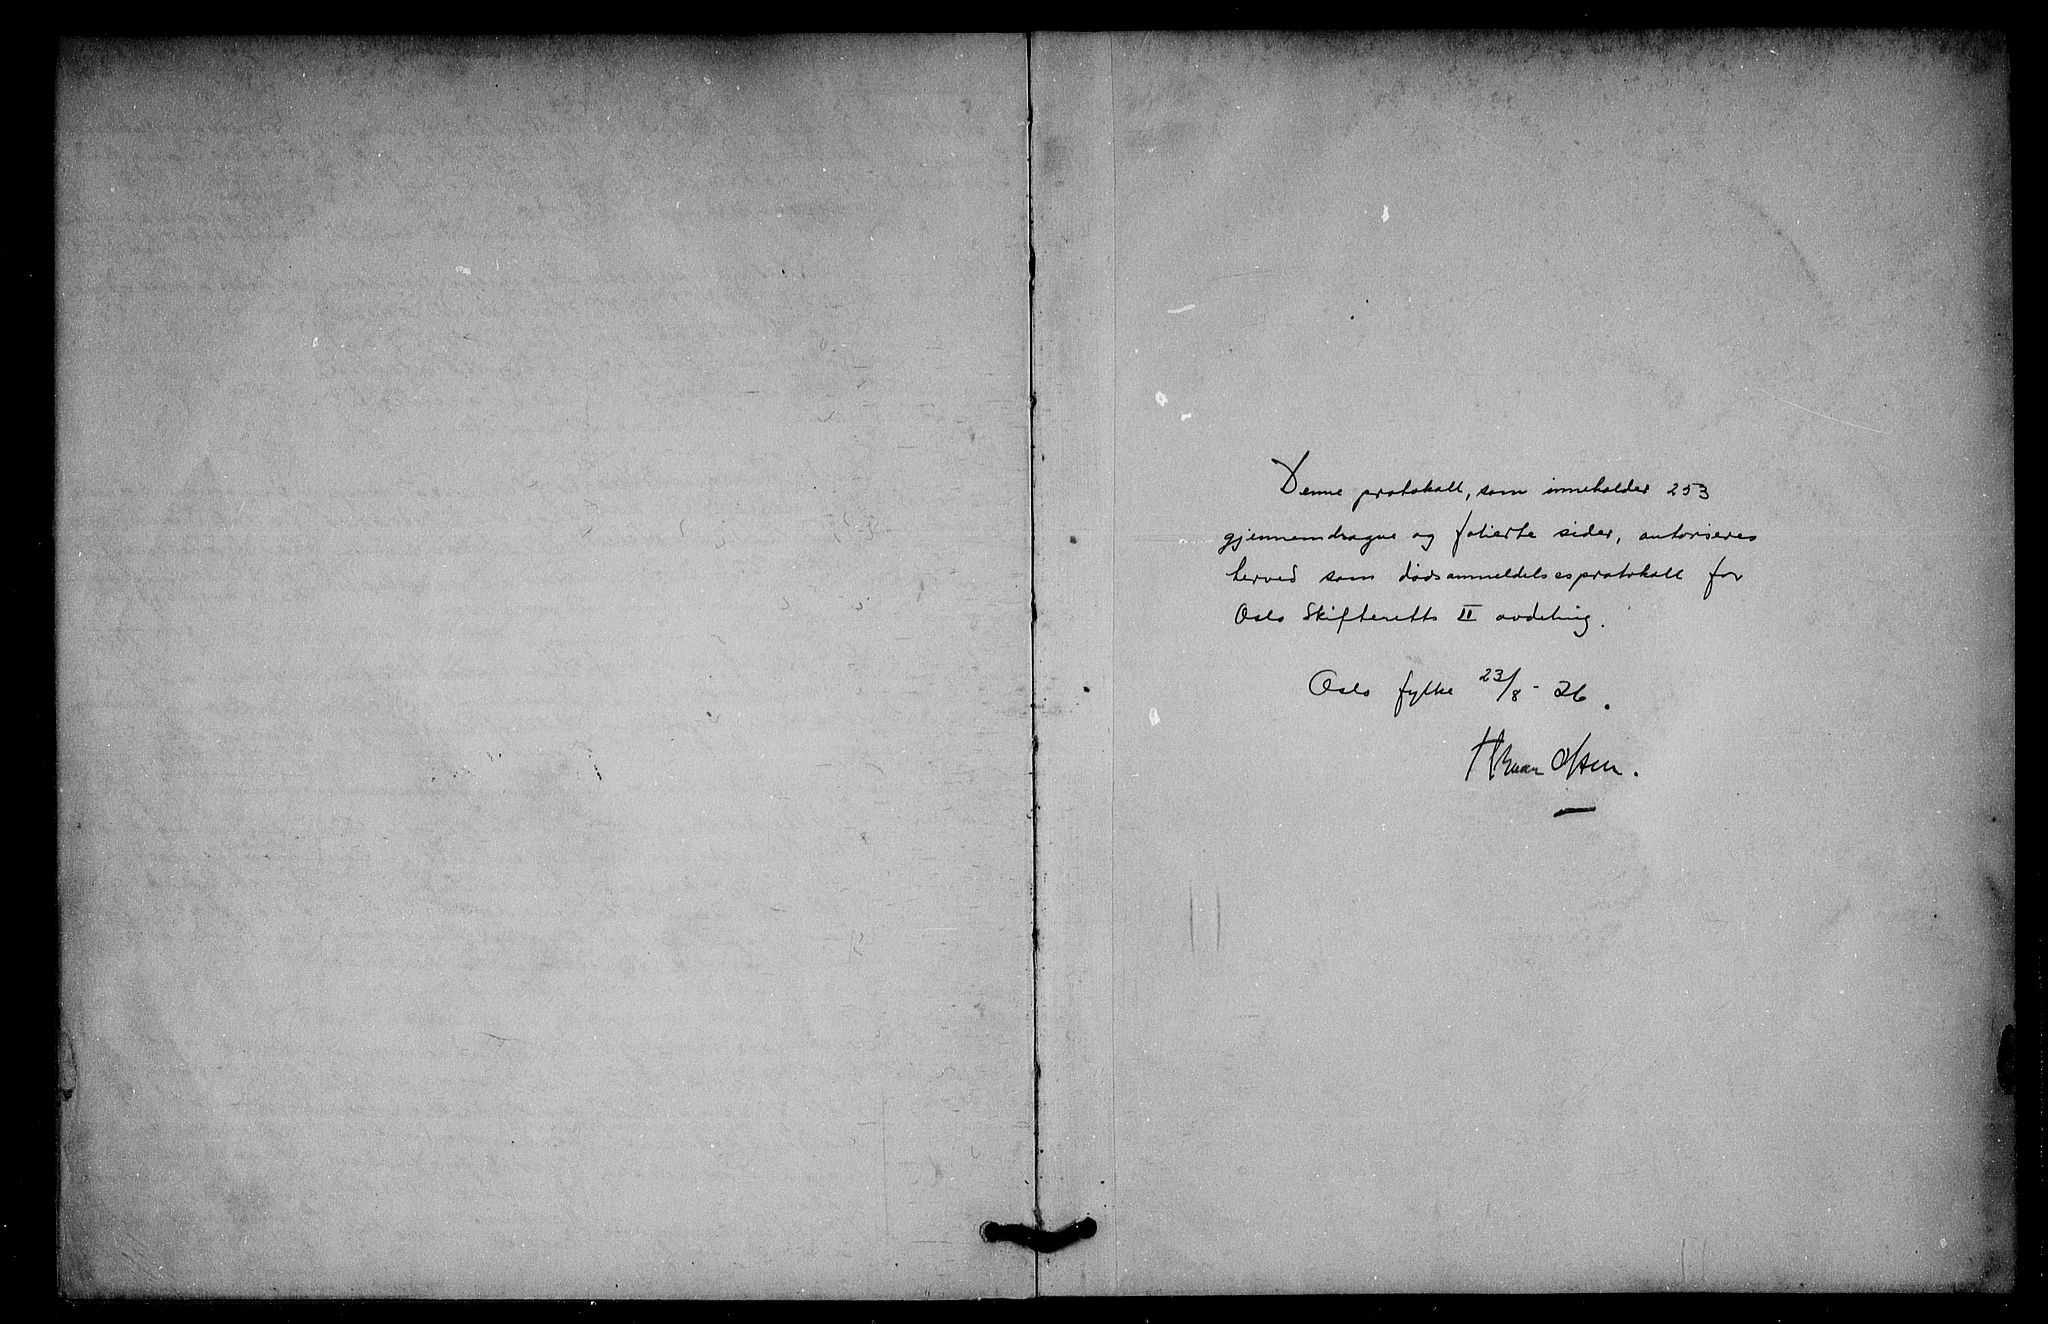 Denne protokoll, som inneholder 253
gjennemdragne og folierte sider, autoriseres
herved som dødsanmeldelsesprotokoll for
Oslo Skifteretts II avdeling.
Oslo fylke 23/8 - 26.
Olsen.